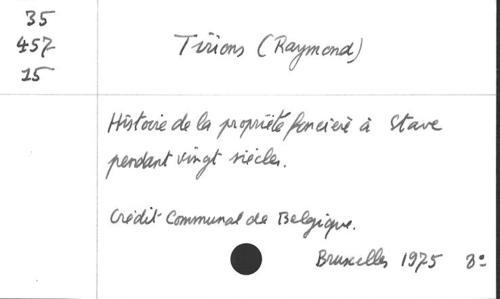 35
457
15
Tirions (Raymond)
Histoire de la propriété foncière à Stave
pendant vingt siècles.
Crédit Communal de Belgique.
Bruxelles 1975 8°